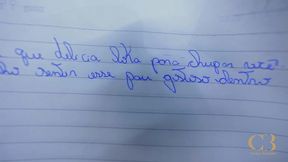 que delicia loka para chupar você
sentir esse pau gostoso dentro
C3